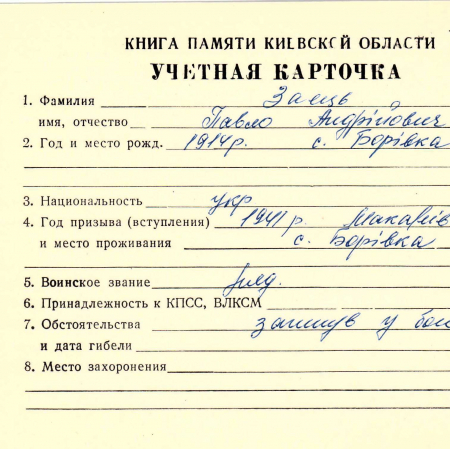 КНИГА ПАМЯТИ КИЕВСКОЙ ОБЛАСТИ
УЧЕТНАЯ КАРТОЧКА
1. Фамилия Заєць
имя, отчество Павло Андрійович
2. Год и место рожд. 1914 р. с. Борівка
3. Национальность укр
4. Год призыва (вступления) 1941 р Макарів
и место проживания с. Борівка
5. Воинское звание ряд.
6. Принадлежность к КПСС, ВЛКСМ
7. Обстоятельства загинув у бою
и дата гибели
8. Место захоронения